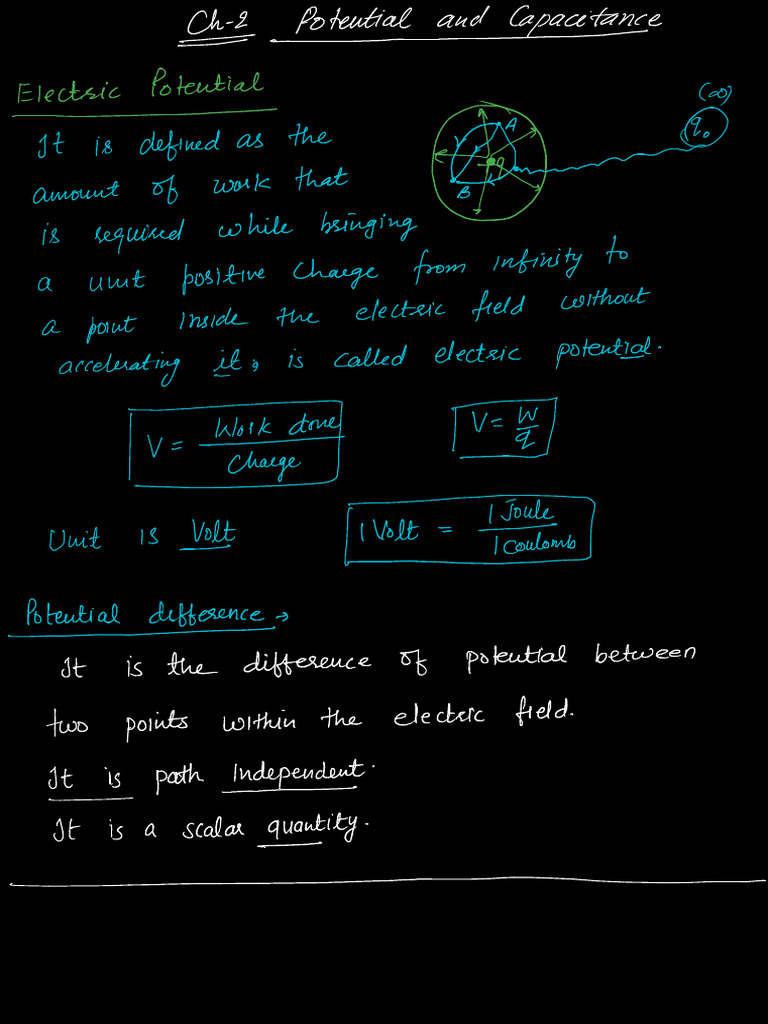 Ch-2 Potential and Capacitance
Electric Potential
(∞)
q₀
A
q
B
It is defined as the
amount of work that
is required while bringing
a unit positive charge from infinity to
a point inside the electric field without
accelerating it, is called electric potential.
V = Work done / Charge
V = W / q
Unit is Volt
1 Volt = 1 Joule / 1 Coulomb
Potential difference →
It is the difference of potential between
two points within the electric field.
It is path independent.
It is a scalar quantity.